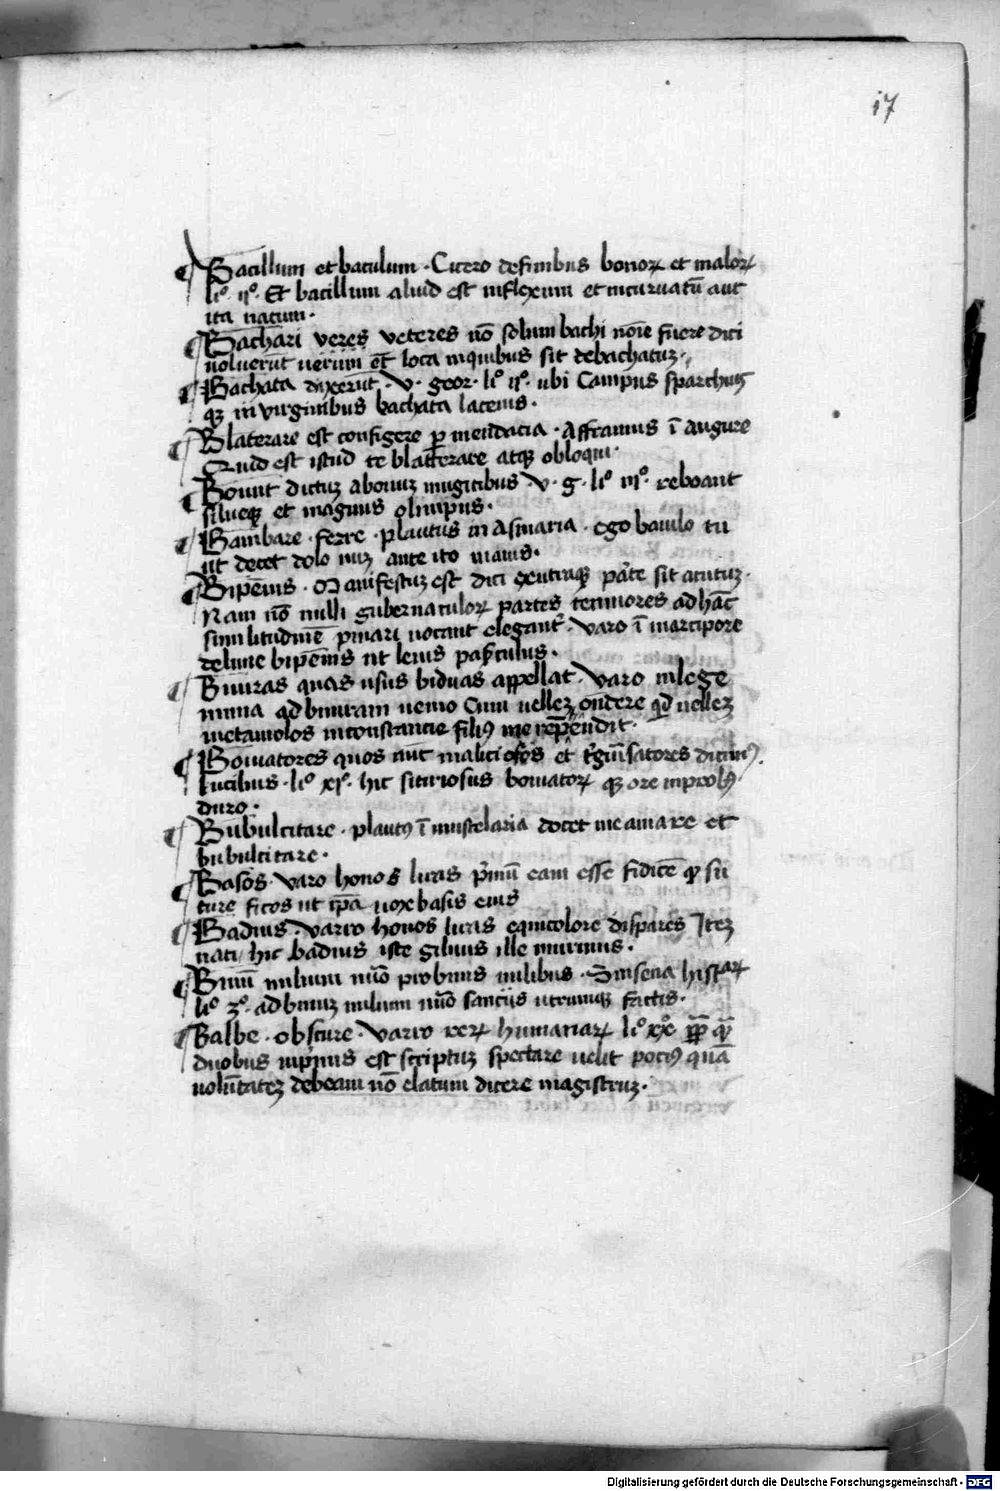 17
¶ Bacillum et baculum · Cicero definibus bonoꝝ et maloꝝ
liº · ijº · Et bacillum aliud est inflexum et incuruatū aut
ita natum ·
¶ Bachari veres veteres nō solum bachi noīe fuere dici
uoluerūt uerum et̄ loca inquibus sit debachatuꝫ ·
¶ Bachata dixerūt · V · geor · liº ijº · ubi Campus sparchius
qꝫ in virginibus bachata lacenis ·
¶ Blaterare est configere ꝑ mendacia · Affranius ī augure
Quid est istud te blatterare atqꝫ obloqui ·
¶ Bount dictuꝫ abouuꝫ mugitibus V · g · liº iijº · reboant
silueqꝫ et magnus olimpus ·
¶ Baiulare · ferre · plautus in Asinaria · ego baiulo tu
ut decet dolo nuꝫ ante ito inanis ·
¶ Bipēnis · Manifestuꝫ est dici qꝫ utraqꝫ parte sit acutuꝫ ·
Nam nō nulli gubernaculoꝝ partes tenuiores ad hāc
similitudinē pinari uocant eleganť · Varo ī marcipore
delune bipēnis ut leuis passerculus ·
¶ Biuiras quas usus biduas appellat · Varo inlege
menia ad biuiram uenio Cum uelleꝫ ōndere qd̄ uelleꝫ
metamolos inconstancie filiꝰ me repēndit ·
¶ Bouiatores quos nūc maliciosos et ťgiūsatores dicimꝰ ·
Lucibus · liº xjº · hic situriosus bouiatoꝝ qꝫ ore inprobꝰ
duro ·
¶ Bubulcitare · plautꝰ ī mustelaria docet me amare et
bubulcitare ·
¶ Basos · Varo honos luras p̄mū eam esse fidicē qꝫ su
ture ficos ut ip̄a uox basis eius
¶ Badius · varro honos luras equicolore dispares Iteꝫ
nati hic badius iste giluus ille murinus ·
¶ Binū milium nūo probinis milibus · Sinsena histaꝝ
liº 3º · ad binuꝫ milium nūo sauciis utrimqꝫ factis ·
¶ Balbe · obscure · varro reꝝ humanaꝝ liº xxº
duobus inprimis est scriptuꝫ spectare uelit pociꝰ quā
uolūtateꝫ debeam nō elatum dicere magistruꝫ ·
Digitalisierung gefördert durch die Deutsche Forschungsgemeinschaft - DFG